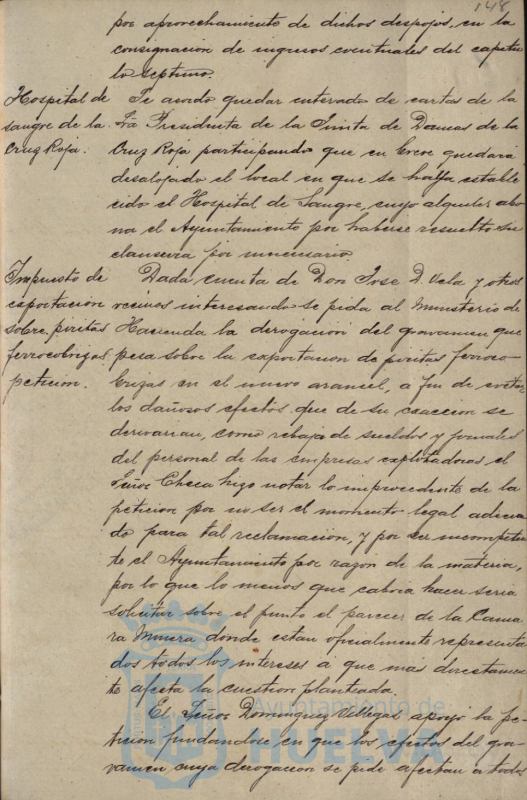 148
por aprovechamiento de dichos despojos, en la
consignacion de ingresos eventuales del capitu
lo septimo.
Hospital de
sangre de la
Cruz Roja.
Se acordo quedar enterado de cartas de la
Sra Presidenta de la Junta de Damas de la
Cruz Roja participando que en breve quedará
desalojado el local en que se halla estable
cido el Hospital de Sangre, cuyo alquiler abo
na el Ayuntamiento por haberse resuelto su
clausura por innecesario.
Impuesto de
exportación
sobre piritas
ferrocobrizas
peticion.
Dada cuenta de Don Jose D. Vela y otros
vecinos interesando se pida al Ministerio de
Hacienda la derogación del gravamen que
pesa sobre la exportacion de piritas ferroco
brizas en el nuevo arancel, a fin de evitar
los dañosos efectos que de su exaccion se
derivarian, como rebaja de sueldos y jornales
del personal de las empresas explotadoras, el
Señor Checa hizo notar lo improcedente de la
peticion por no ser el momento legal adecua
do para tal reclamación, y por ser incompeten
te el Ayuntamiento por razon de la materia,
por lo que lo menos que cabria hacer seria
solicitar sobre el punto el parecer de la Cama
ra Minera donde estan oficialmente representa
dos todos los intereses a que mas directamen
te afecta la cuestion planteada.
El Señor Dominguez Villegas apoyó la pe
ticion fundandose en que los efectos del gra
vamen cuya derogacion se pide afectan a todos
Ayuntamiento de
HUELVA